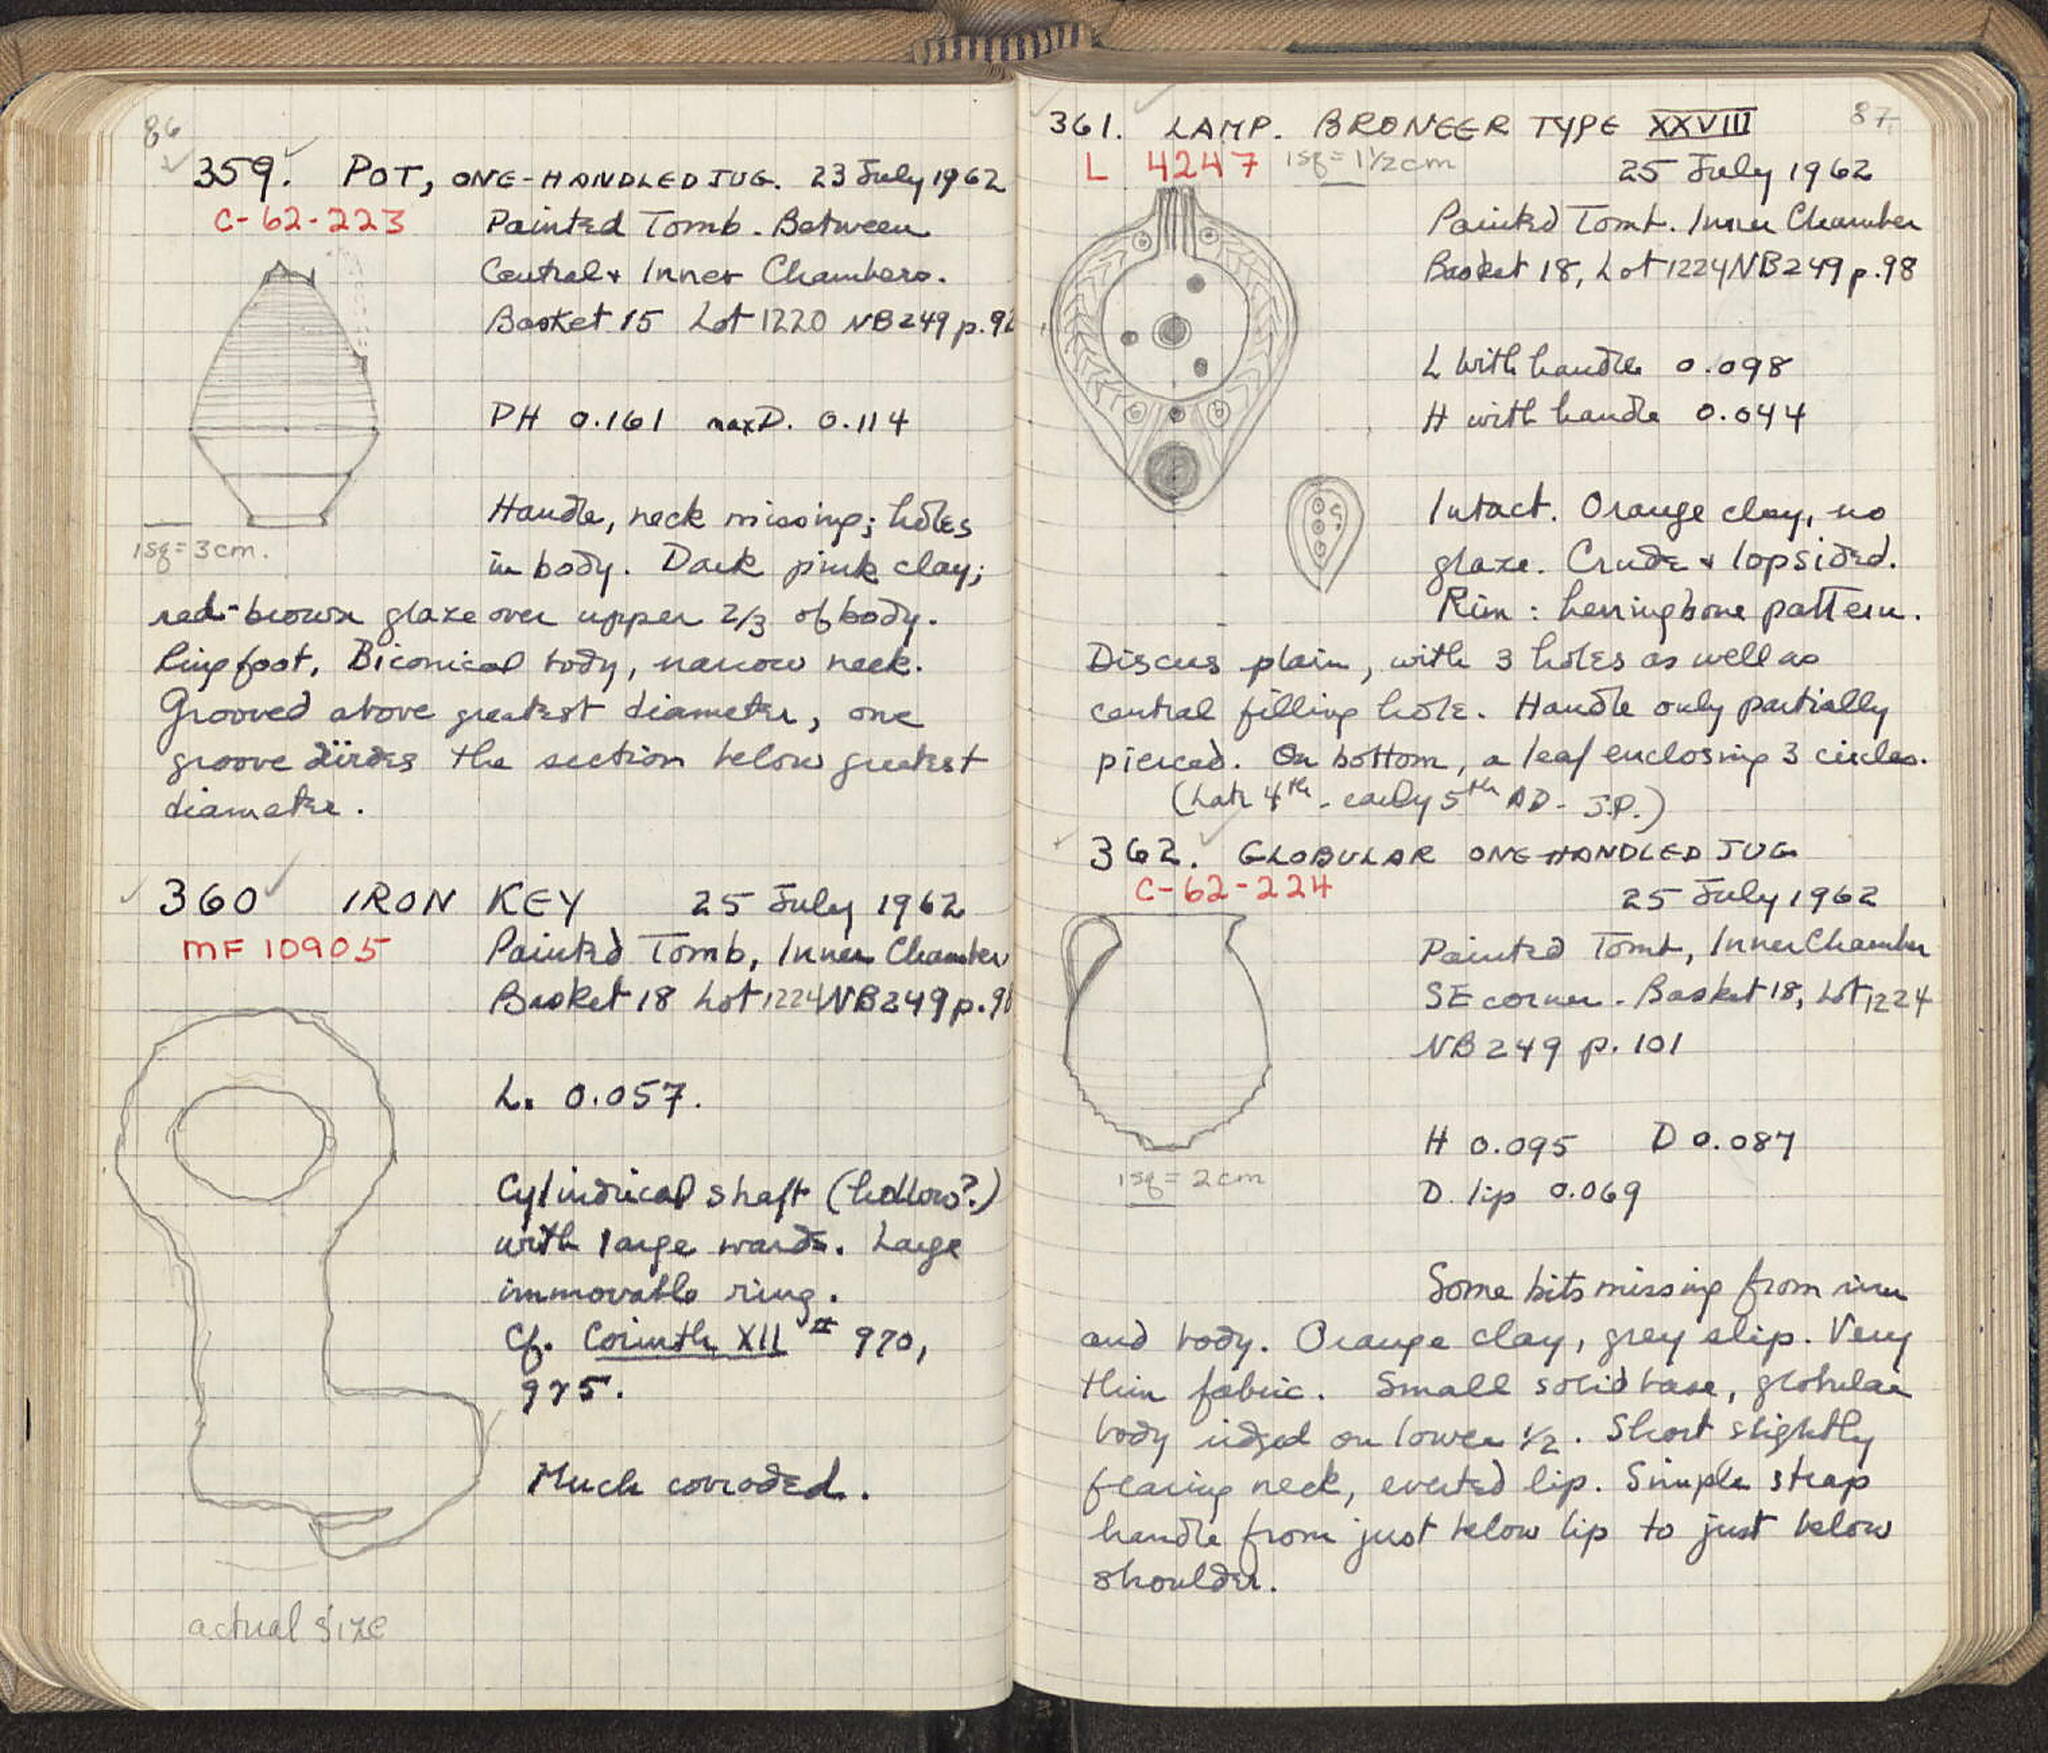 86
359. POT, ONE-HANDLED JUG. 23 July 1962
C-62-223
Painted Tomb. Between
Central + Inner Chambers.
Basket 15 Lot 1220 NB249 p.
PH 0.161 max D. 0.114
Handle, neck missing; holes
in body. Dark pink clay;
1 sq = 3 cm.
red-brown glaze over upper 2/3 of body.
Ring foot, Biconical body, narrow neck.
Grooved above greatest diameter, one
groove the section below greatest
diameter.
360 IRON KEY 25 July 1962
MF 10905
Painted Tomb, Inner Chamber
Basket 18 Lot 1224 NB249 p.
L. 0.057.
Cylindrical shaft (hollow?)
with large wards. Large
immovable ring.
Cf. Corinth XII # 970,
975.
Much corroded.
actual size
87
361. LAMP. BRONEER TYPE XXVIII
L 4247 1 sq = 1 1/2 cm
25 July 1962
Painted Tomb. Inner Chamber
Basket 18, Lot 1224 NB249 p.98
L with handle 0.098
H with handle 0.044
Intact. Orange clay, no
glaze. Crude + lopsided.
Rim: herringbone pattern.
Discus plain, with 3 holes as well as
central filling hole. Handle only partially
pierced. On bottom, a leaf enclosing 3 circles.
(Late 4th - early 5th AD - J.P.)
362. GLOBULAR ONE-HANDLED JUG
C-62-224
25 July 1962
Painted Tomb, Inner Chamber
SE corner. Basket 18, Lot 1224
NB249 p. 101
H 0.095 D 0.087
D. lip 0.069
1 sq = 2 cm
Some bits missing from rim
and body. Orange clay, grey slip. Very
thin fabric. Small solid base, globular
body ridged on lower 1/2. Short slightly
flaring neck, everted lip. Simple strap
handle from just below lip to just below
shoulder.